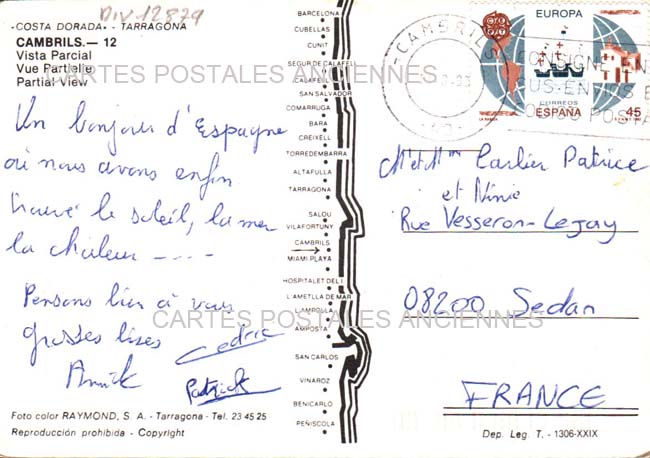 DIV 12879
«COSTA DORADA» - TARRAGONA
CAMBRILS.— 12
Vista Parcial
Vue Partielle
Partial View
CARTES POSTALES ANCIENNES
Un bonjour d'Espagne
où nous avons enfin
trouvé le soleil, la mer
la chaleur - - - -
Pensons bien à vous
grosses bises
Cedric
Annick
Patrick
CARTES POSTALES ANCIENNES
Foto color RAYMOND, S. A. - Tarragona - Tel. 23 45 25
Reproducción prohibida - Copyright
BARCELONA
CUBELLAS
CUNIT
SEGUR DE CALAFELL
CALAFELL
SAN SALVADOR
COMARRUGA
BARA
CREIXELL
TORREDEMBARRA
ALTAFULLA
TARRAGONA
SALOU
VILAFORTUNY
CAMBRILS
MIAMI PLAYA
HOSPITALET DEL I.
L'AMETLLA DE MAR
L'AMPOLLA
AMPOSTA
SAN CARLOS
VINAROZ
BENICARLO
PEÑISCOLA
EUROPA
CORREOS
ESPAÑA
45
LA RABIDA
CAMBRILS
CONSIGNE EN
SUS ENVIOS E
CODIGO POSTA
Mr et Mme Carlier Patrice
et Ninie
Rue Vesseron-Lejay
08200 Sedan
FRANCE
Dep. Leg. T. - 1306-XXIX